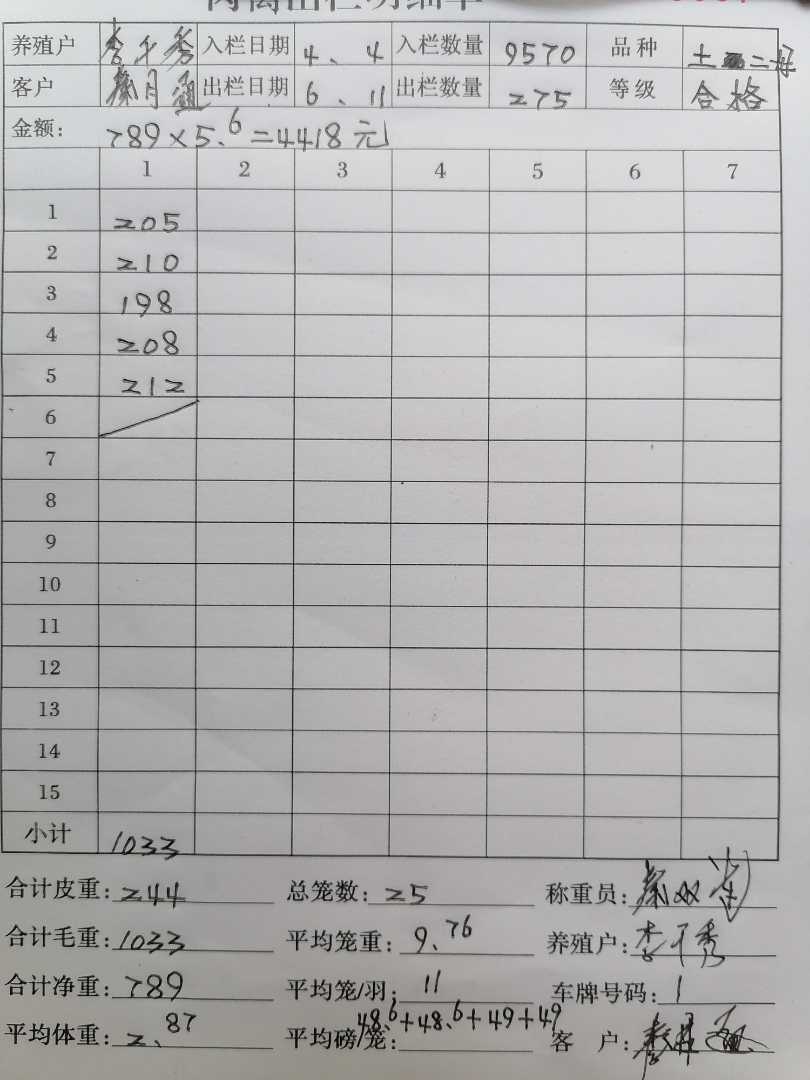 肉禽出栏明细单
养殖户 李千秀 入栏日期 4、4 入栏数量 9570 品种 土二好
客户 秦月通 出栏日期 6、11 出栏数量 275 等级 合格
金额: 789×5.6=4418元
1 2 3 4 5 6 7
1 205
2 210
3 198
4 208
5 212
6
7
8
9
10
11
12
13
14
15
小计 1033
合计皮重: 244 总笼数: 25 称重员: 秦双
合计毛重: 1033 平均笼重: 9.76 养殖户: 李千秀
合计净重: 789 平均笼/羽: 11 车牌号码: 1
平均体重: 2.87 平均磅/笼: 48.6+48.6+49+49 客 户: